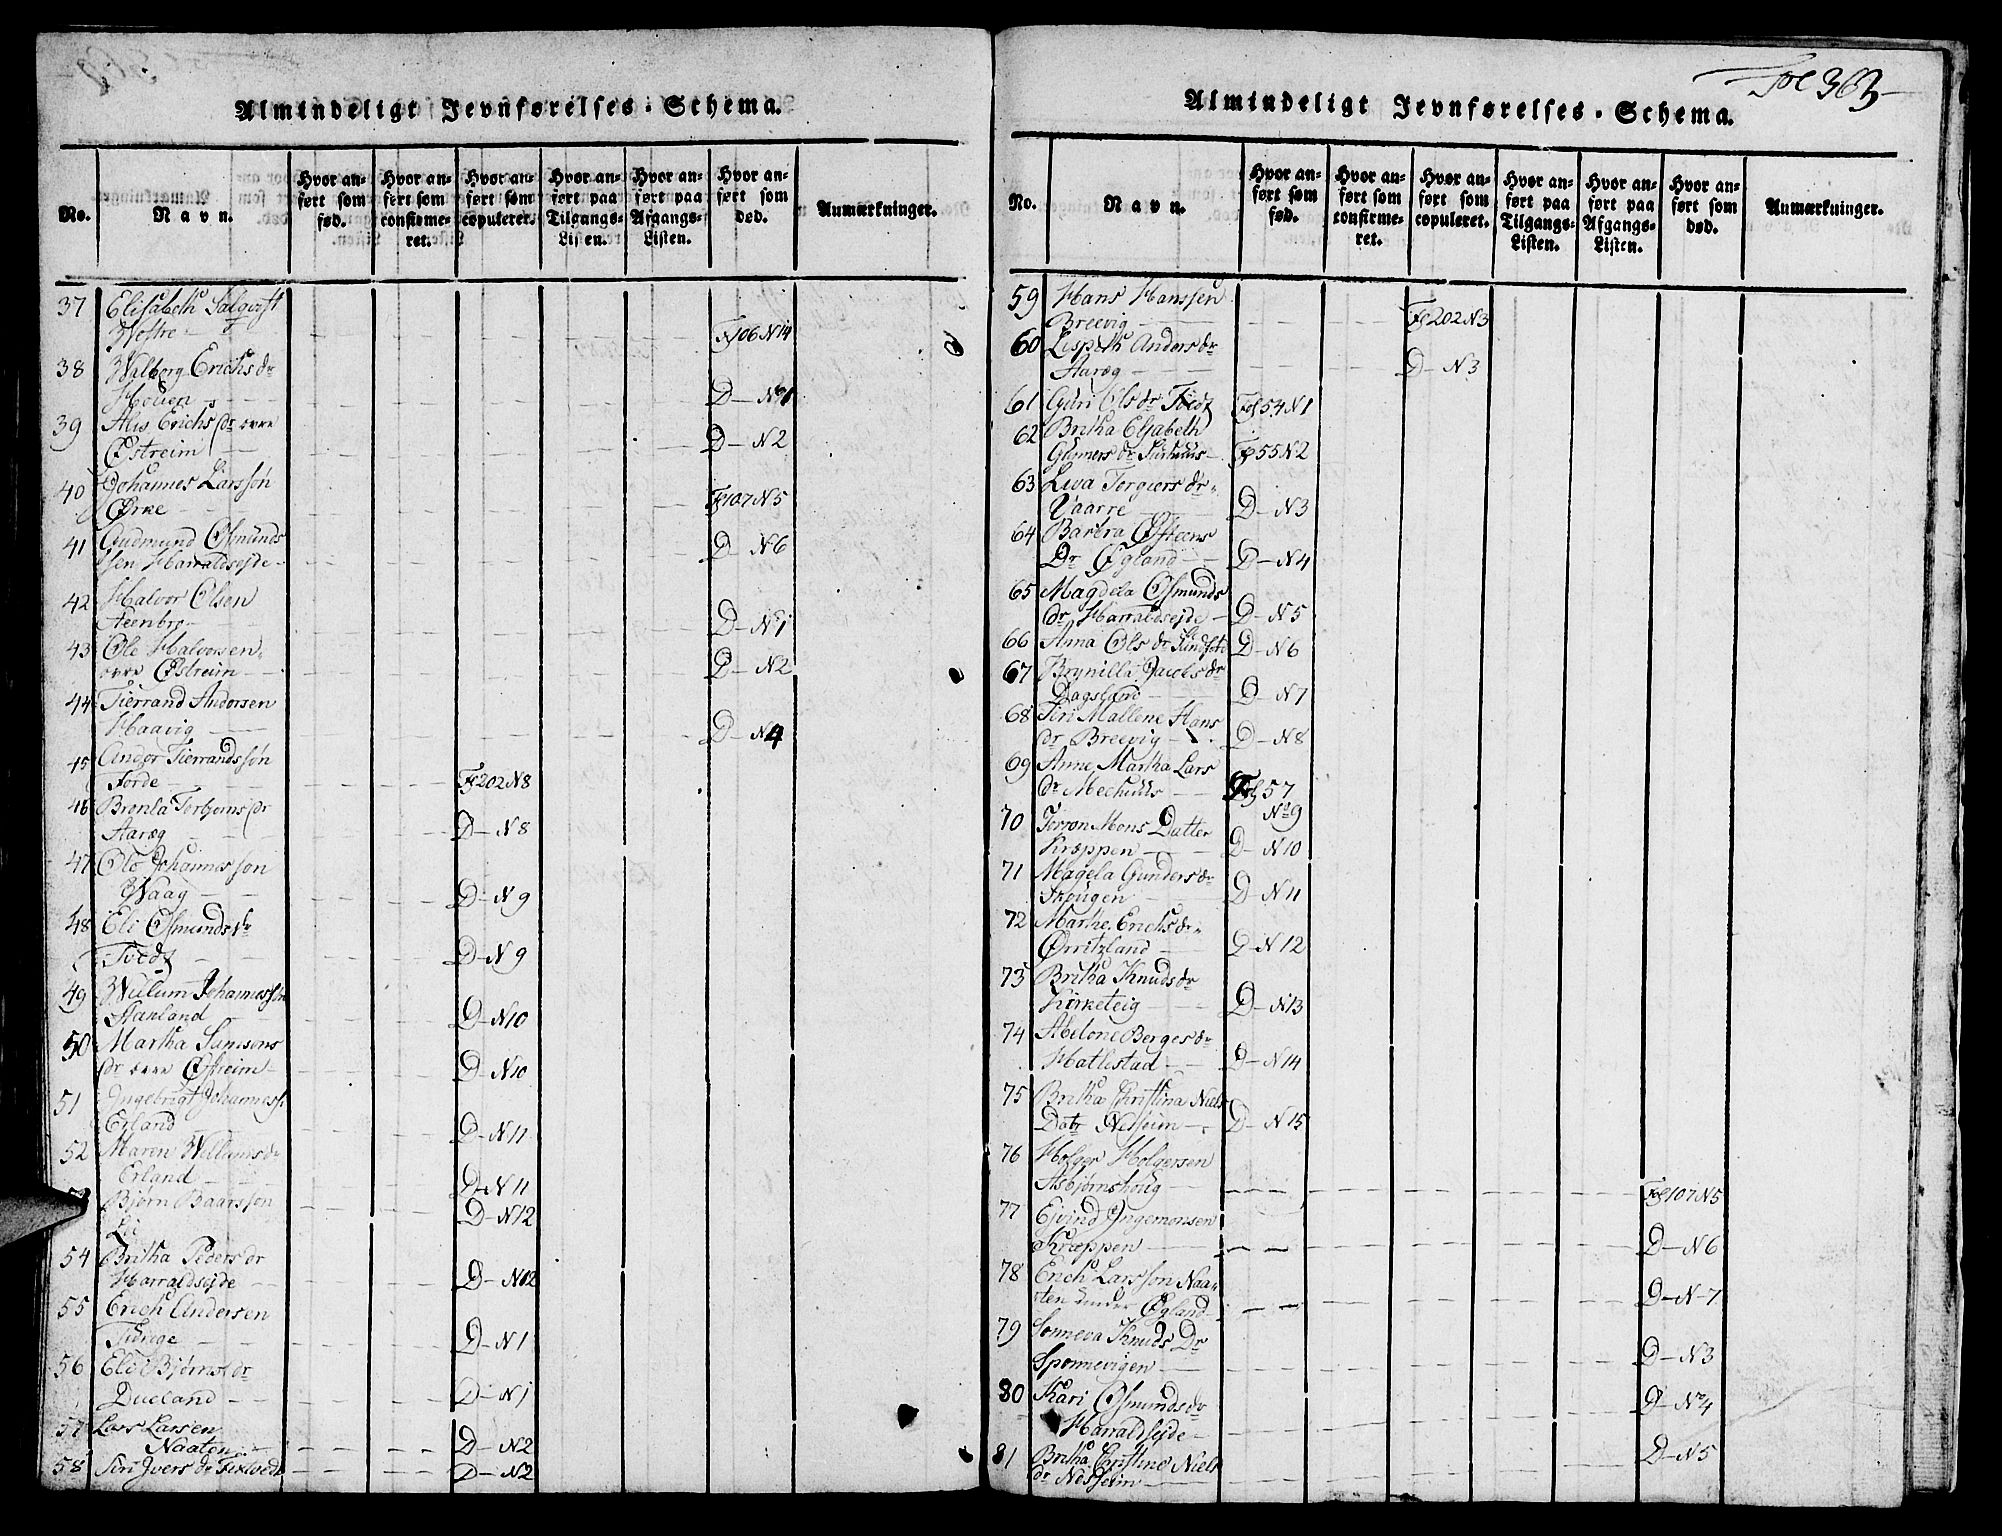 Almindeligt Jevnførelses-Schema.
No.
Navn.
Hvor an-
ført som
fød.
Hvor an-
ført som
confirme-
ret.
Hvor an-
ført som
copuleret.
Hvor an-
ført paa
Tilgangs-
Listen.
Hvor an-
ført paa
Afgangs-
Listen.
Hvor an-
ført som
død.
Anmærkninger.
37 Elisabeth
Westre
Fg 106 N 14
38 Walberg Erichs dr
Houen
D - N 1
39 Alis Erichs dr øvre
Østreim
D - N 2
40 Johannes Larssøn
Ørke
Fg 107 N 5
41 Gudmund Osmunds
sen Harraldsejde
D - N 6
42 Halvor Olsen
Steenbro
D - N 1
43 Ole Halvorsen
øvre Østreim
D - N 2
44 Tierrand Andersen
Haavig
D - N 4
45 Ander Tierrandssøn
Førde
Fg 202 N 8
46 Bronla Torbjørns dr
Aaræg
D - N 8
47 Ole Johannessøn
Waag
D - N 9
48 Eli Osmunds dr
Tvedt
D - N 9
49 Willum Johannessøn
Stanland
D - N 10
50 Martha Samsons
dr øvre Østreim
D - N 10
51 Ingebrigt Johanness:
Erland
D - N 11
52 Maren Wellums dr
Erland
D - N 11
53 Bjørn Baarssøn
Lie
D - N 12
54 Britha Peders dr
Harraldsejde
D - N 12
55 Erich Andersen
D - N 1
56 Eli Bjørns dr
Dueland
D - N 1
57 Lars Larsen
Naaten
D - N 2
58 Siri Ivers dr
D - N 2
Fol 363
Almindeligt Jevnførelses-Schema.
No.
Navn.
Hvor an-
ført som
fød.
Hvor an-
ført som
confirme-
ret.
Hvor an-
ført som
copuleret.
Hvor an-
ført paa
Tilgangs-
Listen.
Hvor an-
ført paa
Afgangs-
Listen.
Hvor an-
ført som
død.
Anmærkninger.
59 Hans Hanssen
Breevig
Fg 202 N 3
60 Lispeth Anders dr
Aaræg
D - N 3
61 Guri Ols dr Tvedt
Fol 54 N 1
62 Britha Elsabeth
Gunners dr
Fg 55 N 2
63 Liva Torgiers dr
Vaarre
D - N 3
64 Barbra Østeens
Dr Øgland
D - N 4
65 Magdela Osmunds
dr Harraldsejde
D - N 5
66 Anna Ols dr
D - N 6
67 Brynilla Jacobs dr
Dagsland
D - N 7
68 Siri Mallene Hans
dr Breevig
D - N 8
69 Anne Martha Lars
dr
Fol 57
No 9
70 Torron Mons Datter
Kræppen
D - N 10
71 Magela Gunders dr
Skougen
D - N 11
72 Marthe Erichs dr
Ørritzland
D - N 12
73 Britha Knuds dr
Kirketeig
D - N 13
74 Abelone Berges dr
Hatlestad
D - N 14
75 Britha Christina Niels
Datr Nesheim
D - N 15
76 Holger Holgersen
Asbjørnshoug
Fol 107 N 5
77 Ejvind Ingemonsen
Kræppen
D - N 6
78 Erich Larssøn Naa-
ten under Øgland
D - N - 7
79 Sonneva Knuds Dr
Sponnevigen
D - N 3
80 Kari Osmunds dr
Harraldsejde
D - No 4
81 Britha Christine Niels
dr Nesheim
D - N 5